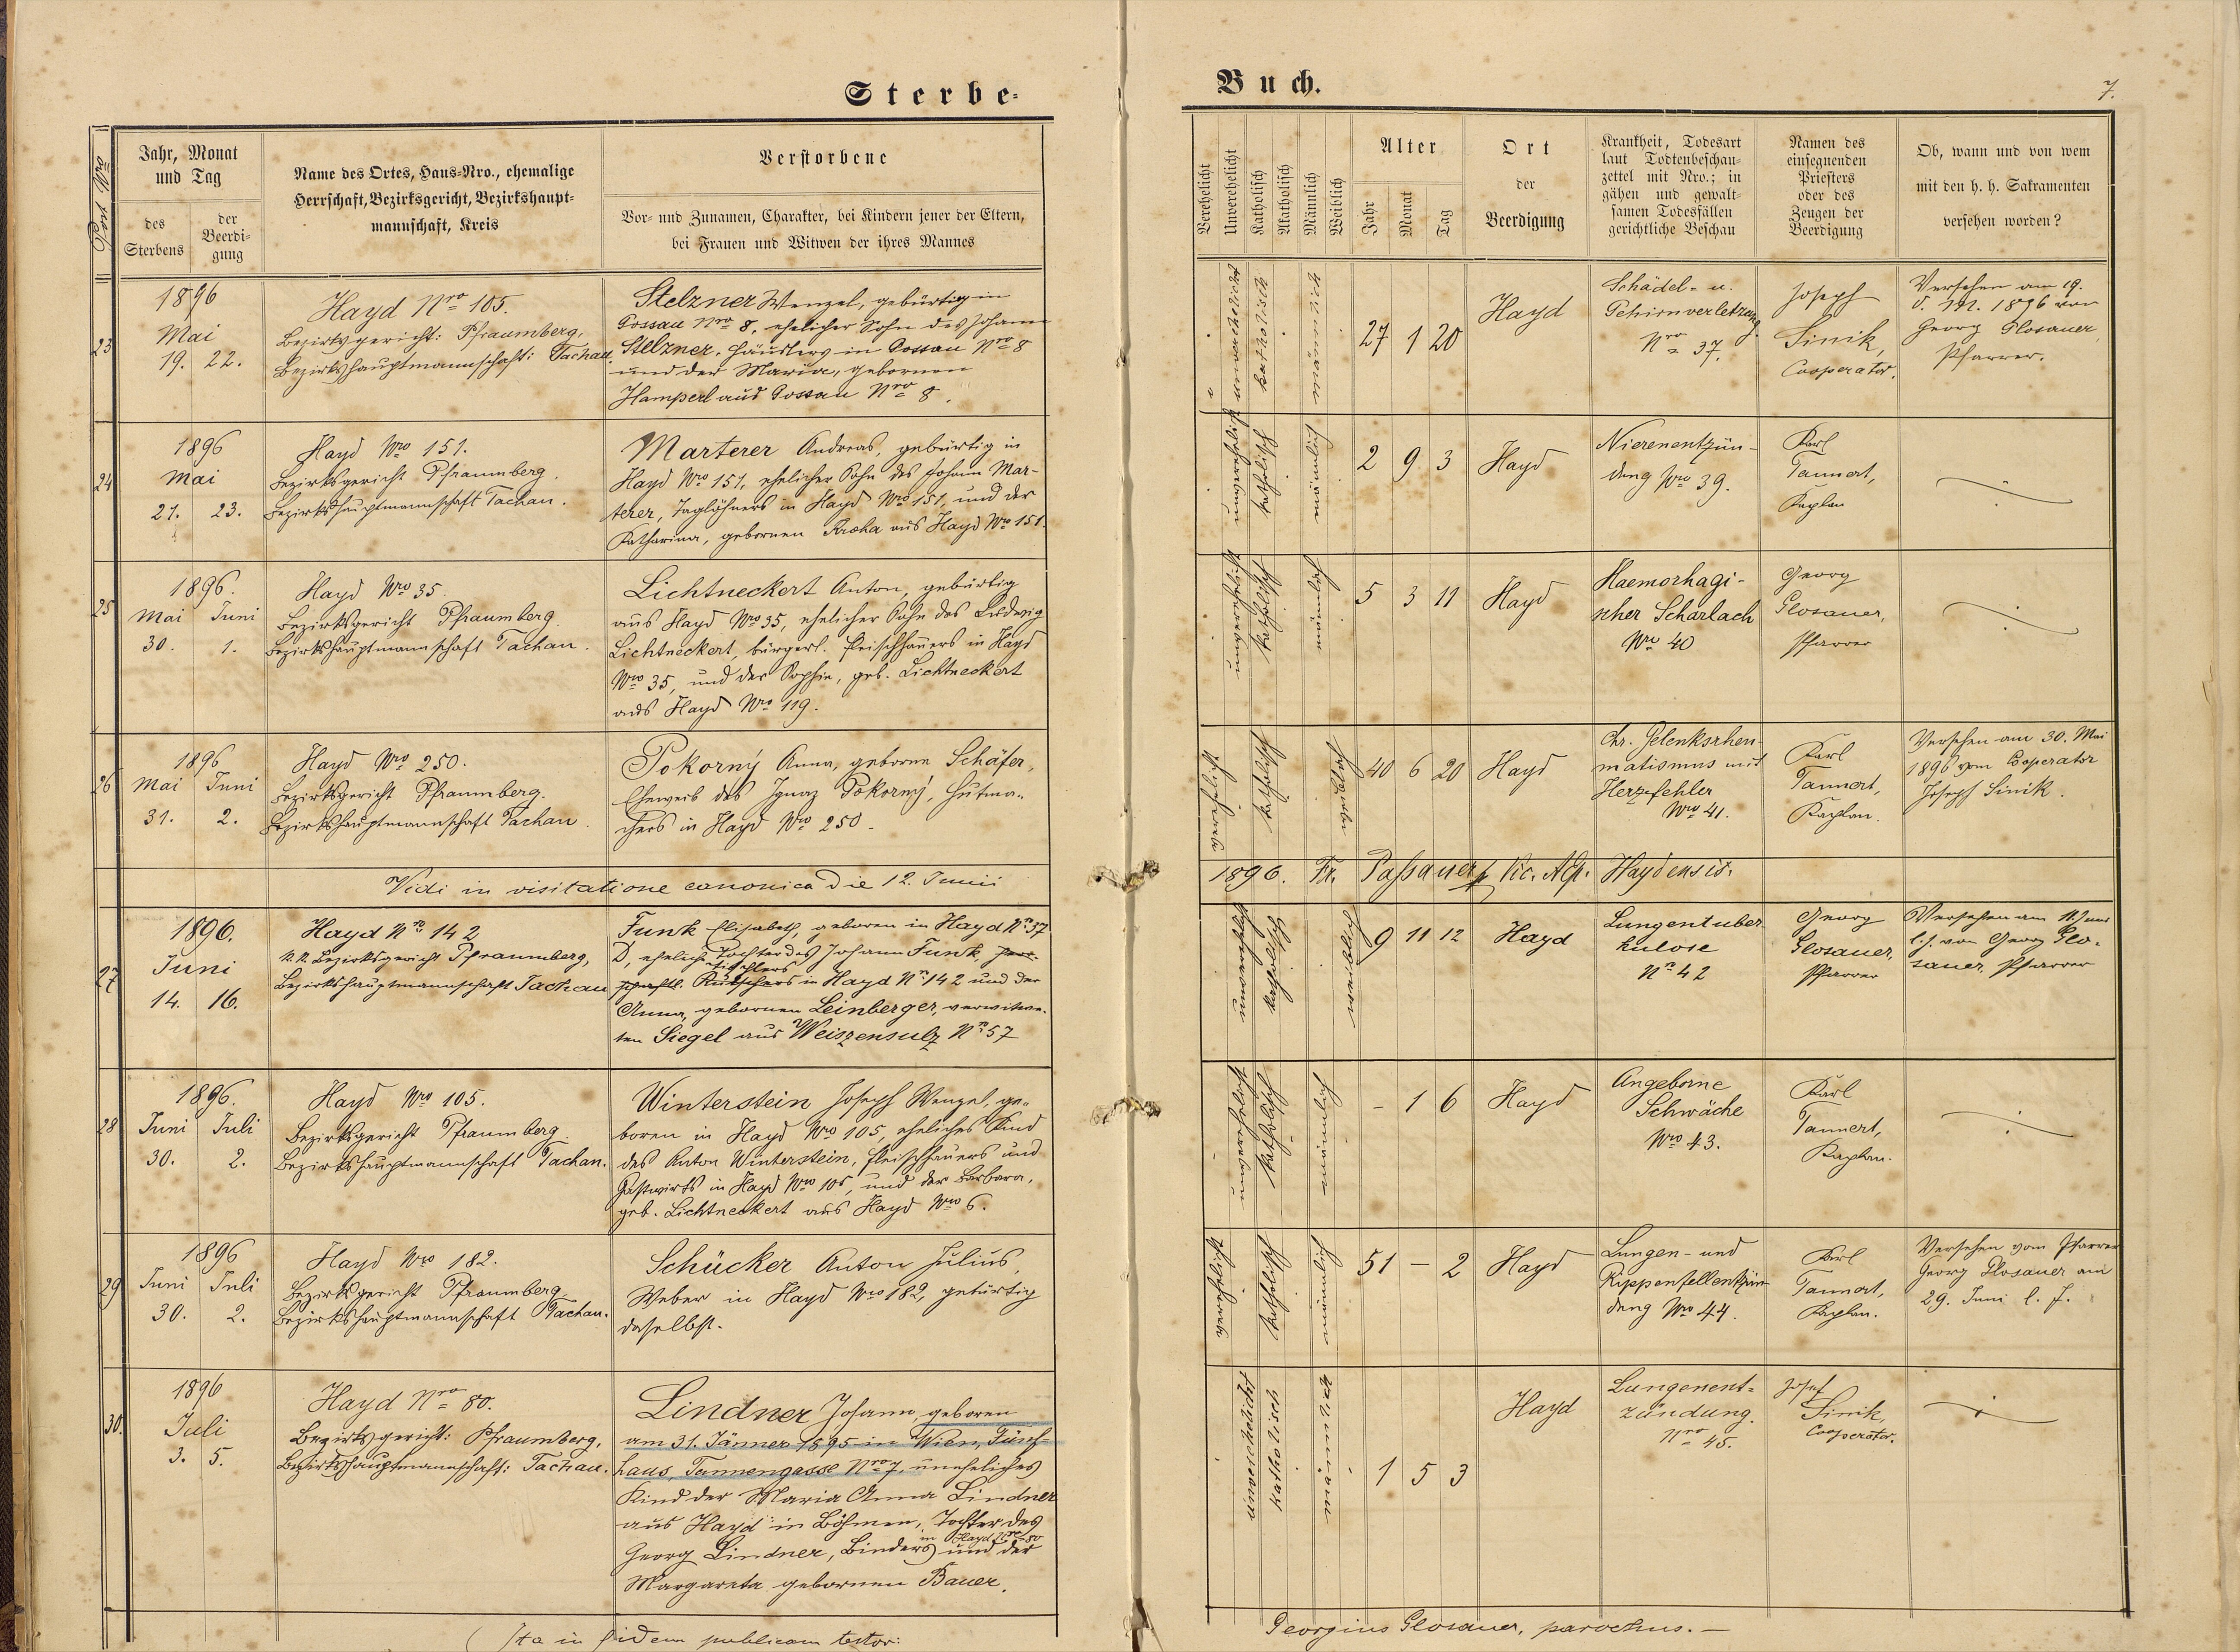 Sterbe-
Buch.
7.
Jahr, Monat
und Tag
des
Sterbens
der
Beerdi-
gung
Name des Ortes, Haus-Nro., ehemalige
Herrschaft, Bezirksgericht, Bezirkshaupt-
mannschaft, Kreis
Verstorbene
Vor- und Zunamen, Charakter, bei Kindern jener der Eltern,
bei Frauen und Witwen der ihres Mannes
Verehelicht
Unverehelicht
Katholisch
Akatholisch
Männlich
Weiblich
Alter
Jahr
Monat
Tag
Ort
der
Beerdigung
Krankheit, Todesart
laut Todtenbeschau-
zettel mit Nro.; in
gähen und gewalt-
samen Todesfällen
gerichtliche Beschau
Namen des
einsegnenden
Priesters
oder des
Zeugen der
Beerdigung
Ob, wann und von wem
mit den h. h. Sakramenten
versehen worden?
23
1896
Mai
19. 22.
Hayd Nro 105.
Bezirksgericht: Pfraumberg,
Bezirkshauptmannschaft: Tachau.
Stelzner Wenzel, gebürtig in
Gossau Nro 8, ehelicher Sohn des Johann
Stelzner, Häuslers in Gossau Nro 8
und der Maria, gebornen
Hamperl aus Gossau Nro 8.
unverehelicht
katholisch
männlich
27 1 20
Hayd
Schädel- u.
Gehirnverletzung.
Nro 37.
Joseph
Sinik,
Cooperator.
Versehen am 19.
d. M. 1896 von
Georg Glosauer,
Pfarrer.
24
1896
Mai
21. 23.
Hayd Nro 151.
Bezirksgericht Pfraumberg.
Bezirkshauptmannschaft Tachau.
Marterer Andreas, gebürtig in
Hayd Nro 151, ehelicher Sohn des Johann Mar-
terer, Taglöhners in Hayd Nro 151, und der
Katharina, gebornen Krcha aus Hayd Nro 151.
unverehelicht
katholisch
männlich
2 9 3
Hayd
Nierenentzün-
dung Nro 39.
Karl
Tannert,
Kaplan
25
1896.
Mai Juni
30. 1.
Hayd Nro 35.
Bezirksgericht Pfraumberg
Bezirkshauptmannschaft Tachau.
Lichtneckert Anton, gebürtig
aus Hayd Nro 35, ehelicher Sohn des Ludwig
Lichtneckert, bürgerl. Fleischhauers in Hayd
Nro 35, und der Sophie, geb. Lichtneckert
aus Hayd Nro 119.
unverehelicht
katholisch
männlich
5 3 11
Hayd
Haemorhagi-
scher Scharlach
Nro 40
Georg
Glosauer,
Pfarrer
26
1896
Mai Juni
31. 2.
Hayd Nro 250.
Bezirksgericht Pfraumberg.
Bezirkshauptmannschaft Tachau.
Pokorný Anna, geborne Schäfer,
Eheweib des Ignaz Pokorný, Hutma-
chers in Hayd Nro 250.
verehelicht
katholisch
weiblich
40 6 20
Hayd
Chr. Gelenksrheu-
matismus mit
Herzfehler
Nro 41.
Karl
Tannert,
Kaplan.
Versehen am 30. Mai
1896 vom Cooperator
Joseph Sinik.
Vidi in visitatione canonica die 12. Junii
1896. Fr. Passauer Vic. Haydensis.
27
1896.
Juni
14. 16.
Hayd Nro 142
k.k. Bezirksgericht Pfraumberg,
Bezirkshauptmannschaft Tachau
Funk Elisabeth, geboren in Hayd Nro 37
D, eheliche Tochter des Johann Funk herr-
Tischlers
schaftl. Kutschers in Hayd Nro 142 und der
Anna, gebornen Leinberger, verwitwe-
ten Siegel aus Weiszensulz Nro 57
unverehelicht
katholisch
weiblich
9 11 12
Hayd
Lungentuber
kulose
Nro 42
Georg
Glosauer,
Pfarrer
Versehen am 11. Juni
l. J. von Georg Glo-
sauer, Pfarrer
28
1896.
Juni Juli
30. 2.
Hayd Nro 105.
Bezirksgericht Pfraumberg
Bezirkshauptmannschaft Tachau.
Winterstein Joseph Wenzel, ge-
boren in Hayd Nro 105, eheliches Kind
des Anton Winterstein, Fleischhauers und
Gastwirts in Hayd Nro 105, und der Barbara,
geb. Lichtneckert aus Hayd Nro 6.
unverehelicht
katholisch
männlich
- 1 6
Hayd
Angeborne
Schwäche
Nro 43.
Karl
Tannert,
Kaplan.
29
1896
Juni Juli
30. 2.
Hayd Nro 182.
Bezirksgericht Pfraumberg.
Bezirkshauptmannschaft Tachau.
Schücker Anton Julius,
Weber in Hayd Nro 182, gebürtig
daselbst.
verehelicht
katholisch
männlich
51 - 2
Hayd
Lungen- und
Rippenfellentzün-
dung Nro 44.
Karl
Tannert,
Kaplan.
Versehen vom Pfarrer
Georg Glosauer am
29. Juni l. J.
30.
1896
Juli
3. 5.
Hayd Nro 80.
Bezirksgericht: Pfraumberg,
Bezirkshauptmannschaft: Tachau.
Lindner Johann, geboren
am 31. Jänner 1895 in Wien, Fünf-
haus, Tannengasse Nro 7, uneheliches
Kind der Maria Anna Lindner
aus Hayd in Böhmen, Tochter des
in Hayd Nro 80
Georg Lindner, Binders und der
Margareta gebornen Bauer.
unverehelicht
katholisch
männlich
1 5 3
Hayd
Lungenent-
zündung.
Nro 45.
Josef
Sinik,
Cooperator.
Ita in fidem publicam testor:
Georgius Glosauer, parochus.